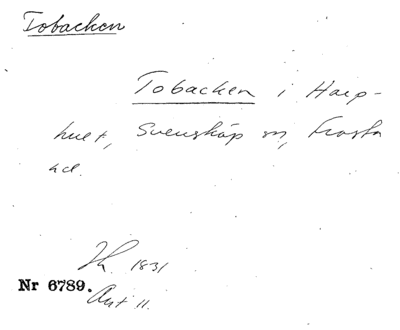 Tobacken
Tobacken i Harp-
huet, Svensköp sn, Frosta
hd.
1831
Nr 6789.
Art 11.